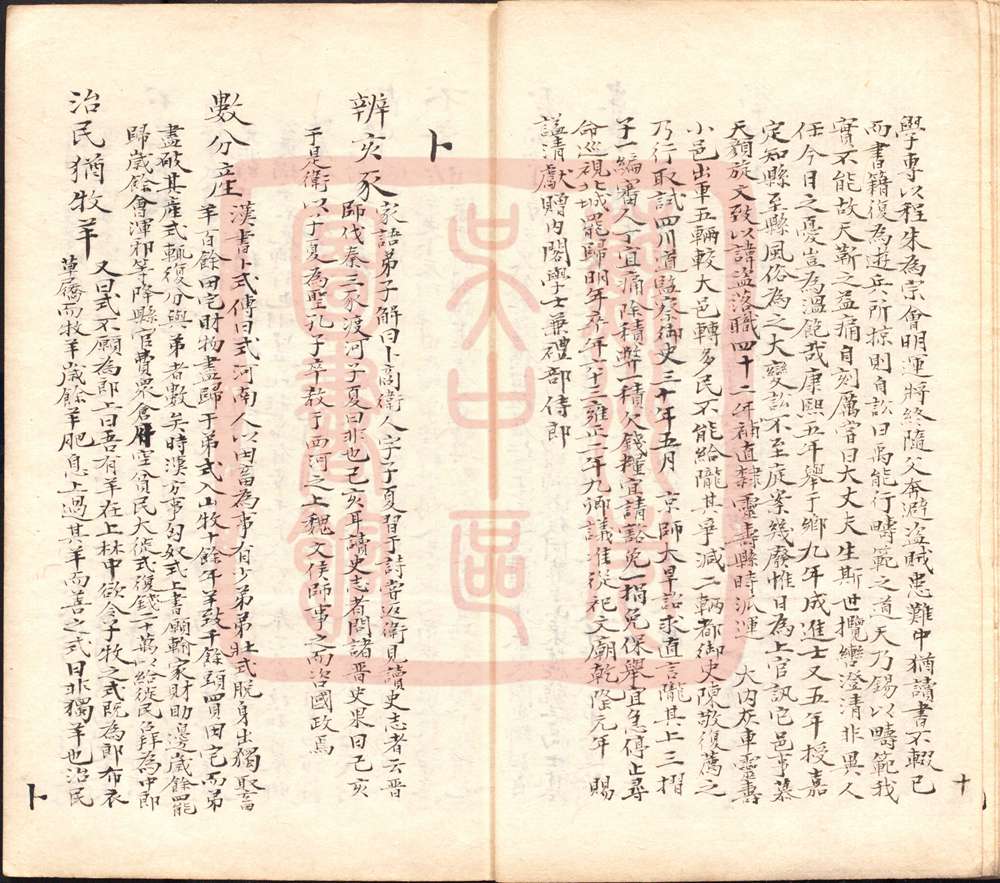 學專以程朱為宗會明運將終隨父奔避盜賊患難中猶讀書不輟已
而書籍復為遊兵所掠則自訟曰禹能行疇範之道天乃錫以疇範我
實不能故天靳之益痛自刻厲嘗曰大丈夫生斯世攬轡澄清非異人
任今日之憂豈為溫飽哉康熙五年舉于鄉九年成進士又五年授嘉
定知縣至縣風俗為之大變訟不至庭案幾廢惟日為上官訊它邑事慕
天顏旋文致以諱盜落職四十二年補直隸靈壽縣時派運 大內灰車靈壽
小邑出車五輛較大邑轉多民不能給隴其爭減二輛都御史陳敬復薦之
乃行取試四川道監察御史三十年五月 京師大旱詔求直言隴其上三摺
子一編審人丁宜痛除積弊一積欠錢糧宜請豁免一捐免保舉宜急停止尋
命巡視北城罷歸明年卒年六十三雍正二年九卿議准從祀文廟乾隆元年 賜
謚清獻贈內閣學士兼禮部侍郎
十
卜
辨亥豕 家語弟子解曰卜商衛人字子夏習于詩嘗返衛見讀史志者云晉
師伐秦三豕渡河子夏曰非也己亥耳讀史志者問諸晉史果曰己亥
于是衛以子夏為聖孔子卒教于西河之上魏文侯師事之而咨國政焉
數分產 漢書卜式傳曰式河南人以田畜為事有少弟弟壯式脫身出獨取畜
羊百餘田宅財物盡歸于弟式入山牧十餘年羊致千餘頭買田宅而弟
盡破其產式輒復分與弟者數矣時漢方事匈奴式上書願輸家財助邊歲餘罷
歸歲餘會渾邪等降縣官費眾倉府空貧民大徙式復錢二十萬以給徙民召拜為中郎
治民猶牧羊 又曰式不願為郎上曰吾有羊在上林中欲令子牧之式既為郎布衣
草蹻而牧羊歲餘羊肥息上過其羊而善之式曰非獨羊也治民
卜